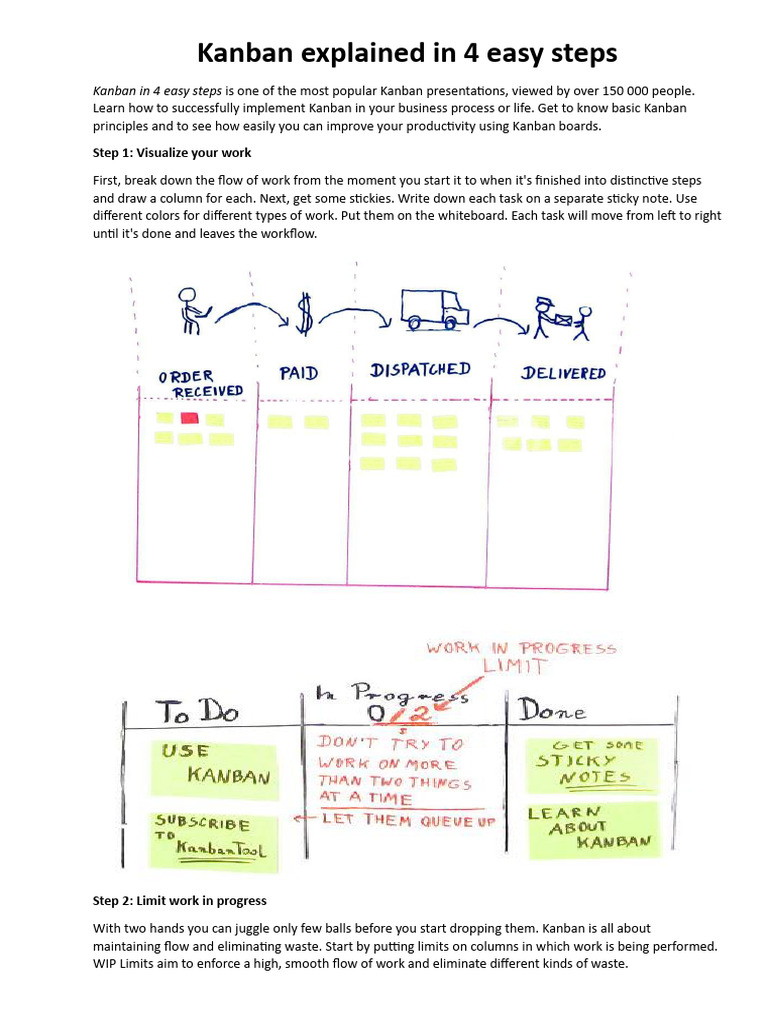 Kanban explained in 4 easy steps
Kanban in 4 easy steps is one of the most popular Kanban presentations, viewed by over 150 000 people.
Learn how to successfully implement Kanban in your business process or life. Get to know basic Kanban
principles and to see how easily you can improve your productivity using Kanban boards.
Step 1: Visualize your work
First, break down the flow of work from the moment you start it to when it's finished into distinctive steps
and draw a column for each. Next, get some stickies. Write down each task on a separate sticky note. Use
different colors for different types of work. Put them on the whiteboard. Each task will move from left to right
until it's done and leaves the workflow.
$
ORDER RECEIVED
PAID
DISPATCHED
DELIVERED
WORK IN PROGRESS
LIMIT
To Do
In Progress
0/2
Done
USE
KANBAN
SUBSCRIBE
TO
KanbanTool
DON'T TRY TO
WORK ON MORE
THAN TWO THINGS
AT A TIME
← LET THEM QUEUE UP
GET SOME
STICKY
NOTES
LEARN
ABOUT
KANBAN
Step 2: Limit work in progress
With two hands you can juggle only few balls before you start dropping them. Kanban is all about
maintaining flow and eliminating waste. Start by putting limits on columns in which work is being performed.
WIP Limits aim to enforce a high, smooth flow of work and eliminate different kinds of waste.